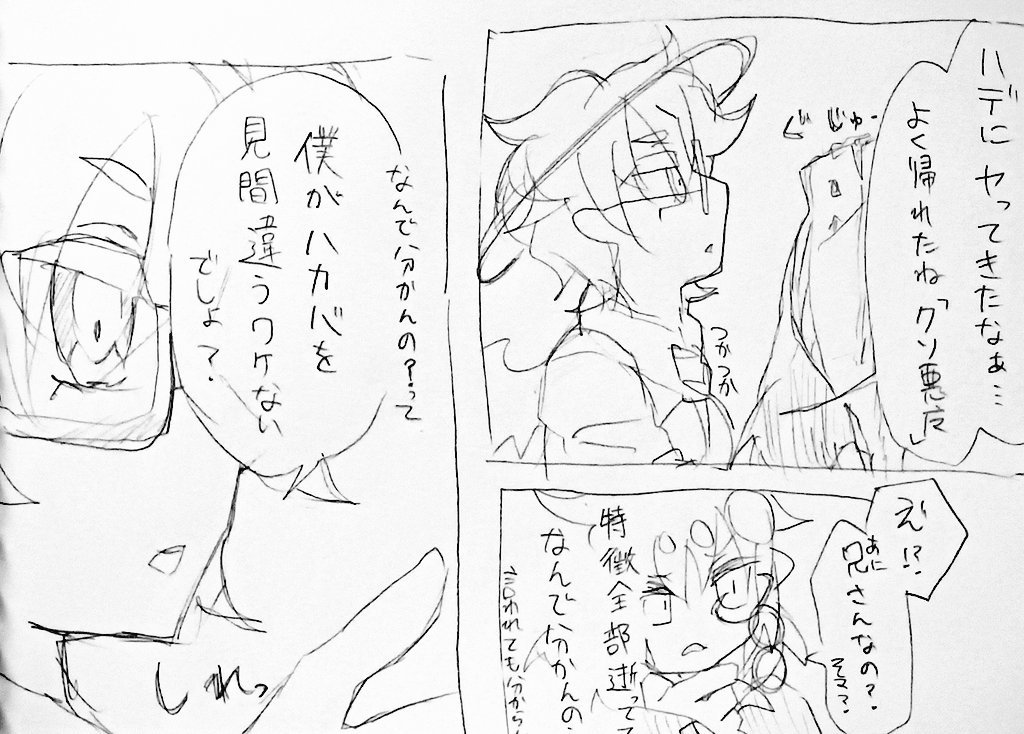 ハデにヤってきたなぁ…
よく帰れたね「クソ悪底」
じゅー
つかつか
え!?
兄さんなの?
あに
特徴全部逝ってて
なんで分かんの
言われても分から
なんで分かんの?って
僕がハカバを
見間違うワケない
でしょ?
しれっ